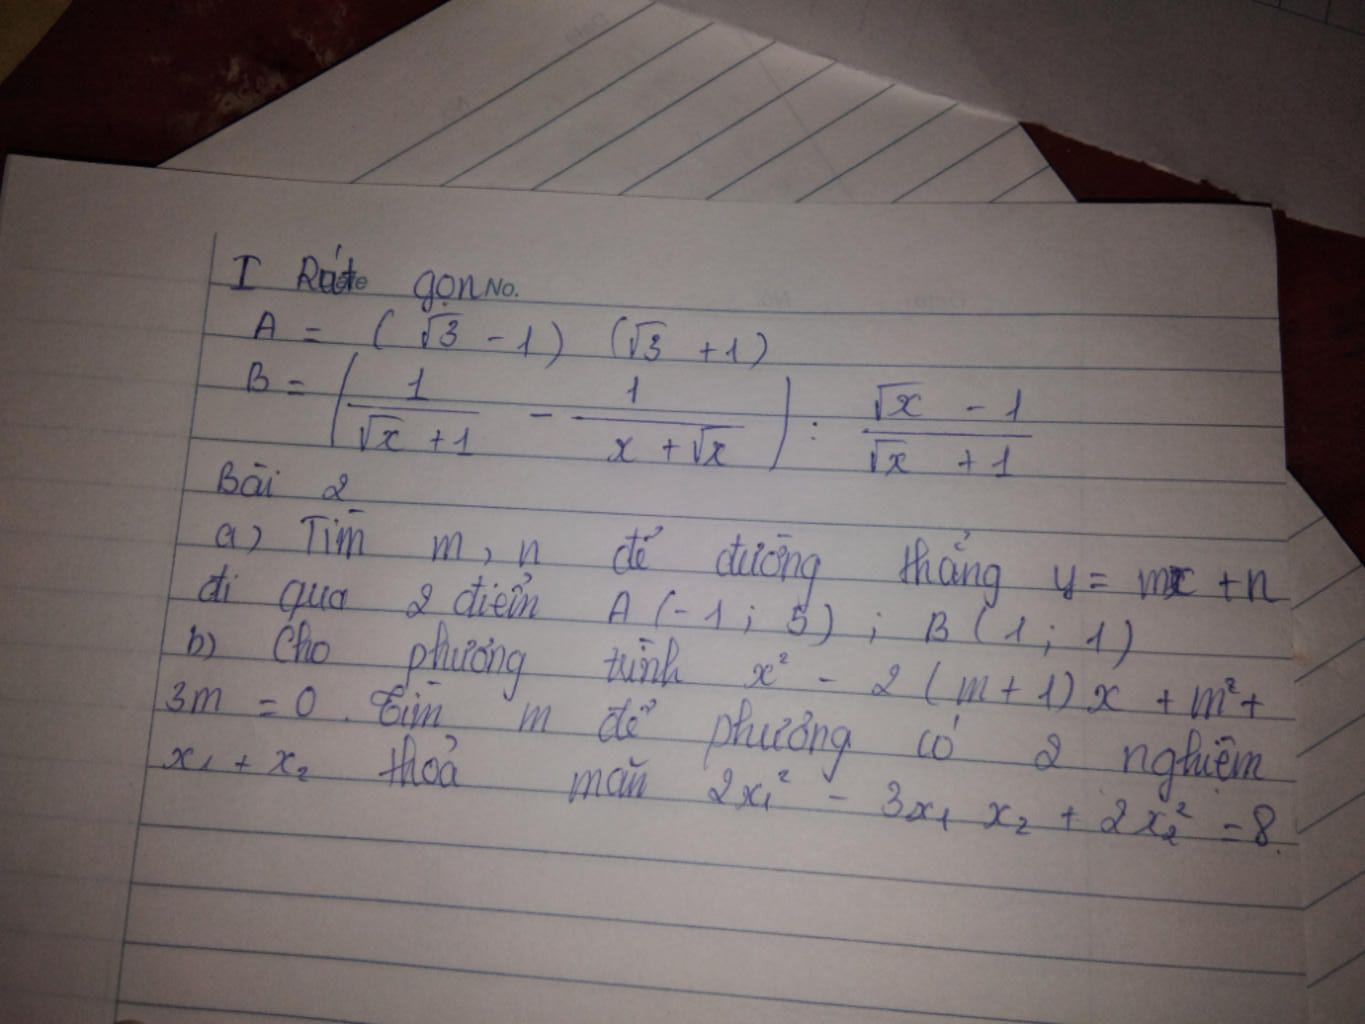 I Rút gọn No.
A = (√3 - 1) (√3 + 1)
B = (1/(√x + 1) - 1/(x + √x)) : (√x - 1)/(√x + 1)
Bài 2
a) Tìm m, n để đường thẳng y = mx + n
đi qua 2 điểm A (-1 ; 5) ; B (1 ; 1)
b) Cho phương trình x² - 2 (m + 1) x + m² +
3m = 0. Tìm m để phương có 2 nghiệm
x₁ + x₂ thoả mãn 2x₁² - 3x₁ x₂ + 2x₂² = 8.